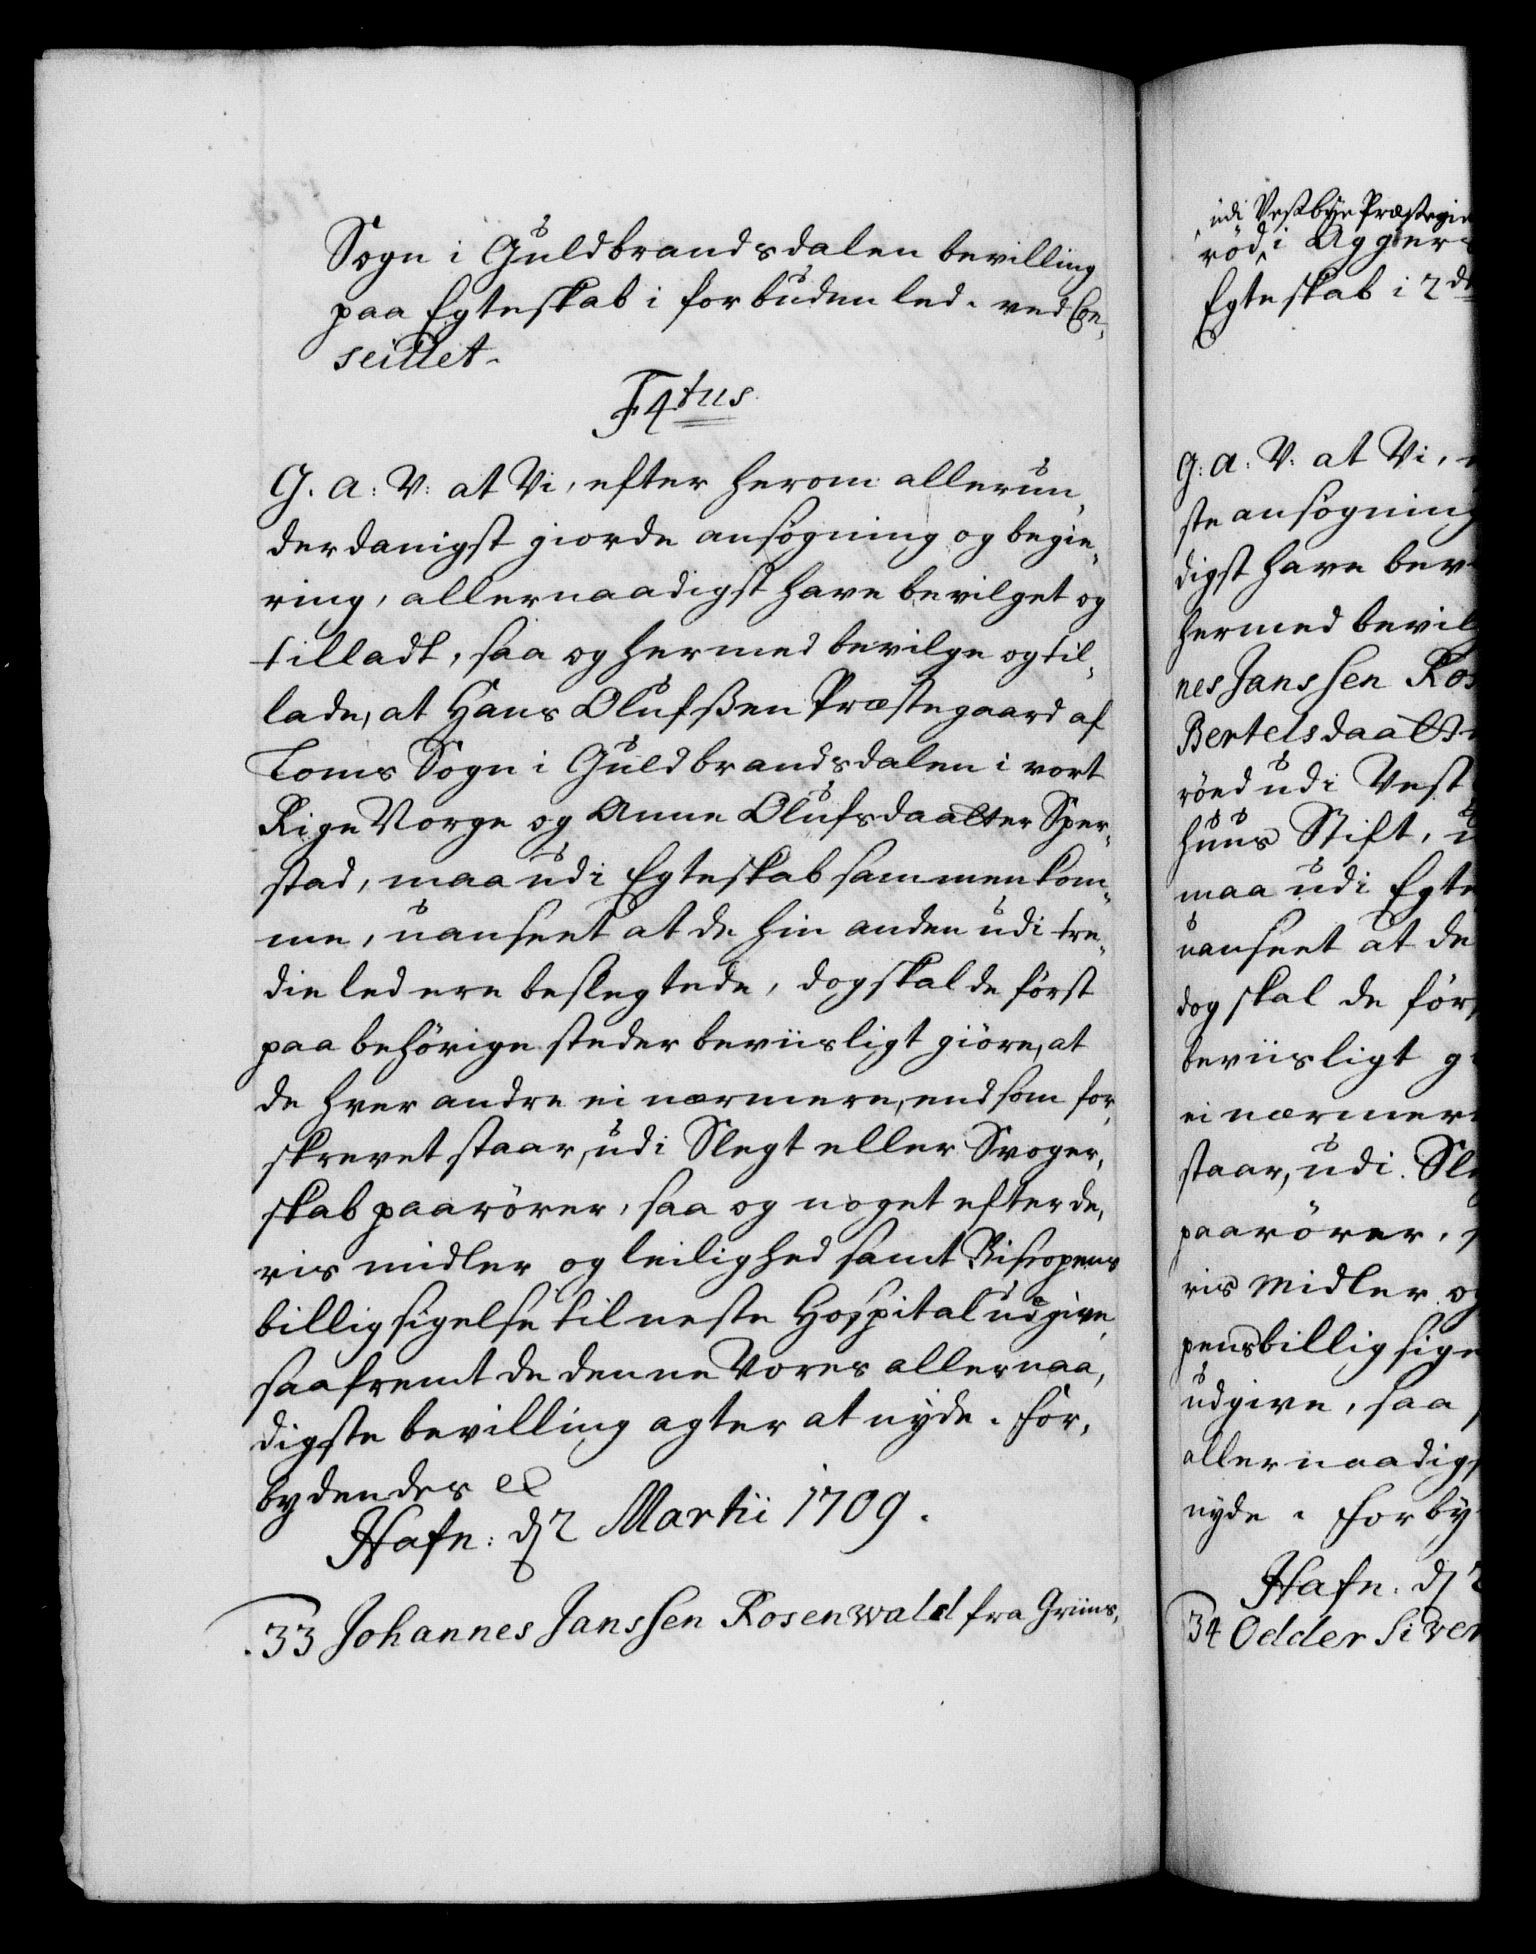 Sogn i Guldbrandsdalen bevilling
paa Egteskab i forbuden led. ved Con-
seillet.
F4tus
G. A: V: at Vi, efter herom allerun-
derdanigst giorde ansøgning og begie-
ring, allernaadigst have bevilget og
tilladt, saa og hermed bevilge og til-
lade, at Hans Olufßen Præstegaard af
Loms Sogn i Guldbrandsdalen i vort
Rige Norge og Anne Olufsdaatter Sper-
stad, maa udi Egteskab sammenkom-
me, uanseet at de hin anden udi tre-
die led ere beslegtede, dog skal de først
paa behörige steder beviisligt giöre, at
de hver andre ei nærmere, end som for-
skrevet staar, udi Slegt eller Svoger-
skab paarörer, saa og noget efter de-
ris midler og leilighed samt Bispens
billigsigelse til neste Hospital udgive
saafremt de denne Vores allernaa-
digste bevilling agter at nyde. For-
bydendes &
Hafn: d 2 Martii 1709.
33 Johannes Janssen Rosenwald fra Griins-
udi Vestbye Præstegie
röd i Agger
Egteskab i 2d
G: A: V: at Vi,
ste ansøgning
digst have bev
hermed bevil
nes Janssen Ros
Bertelsdaatt
röed udi Vest
huus Stift,
maa udi Egte
uanseet at de
dog skal de før
beviisligt g
ei nærmer
staar, udi Sle
paarörer,
ris Midler og
pens billigsige
udgive, saa
allernaadigs
nyde. Forby
Hafn: d 2
34 Odder Siver